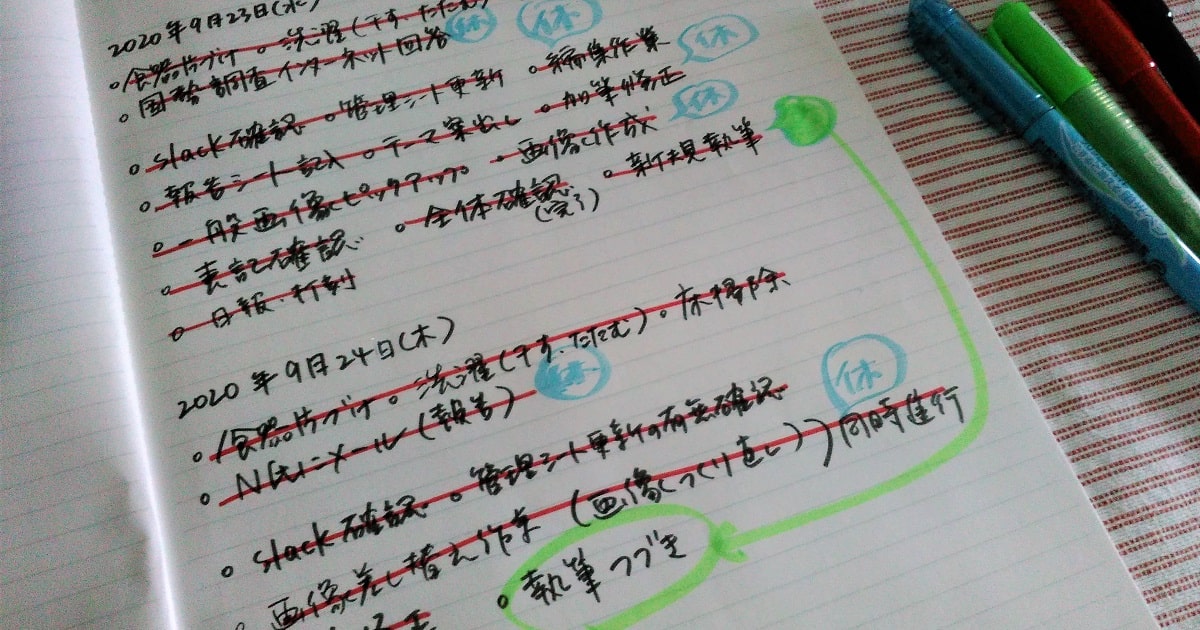 2020年9月23日(水)
○食器片づけ ○洗濯(干す、たたむ) 休
○国勢調査インターネット回答 休
○slack確認 ○管理シート更新 ○編集作業 休
○報告シート記入 ○テーマ案出し ○加筆修正
○一般画像ピックアップ ○画像作成 休
○表記確認 ○全体確認(完了) ○新規執筆
○日報・打刻
2020年9月24日(木)
○食器片づけ ○洗濯(干す、たたむ) ○床掃除
○N氏にメール(報告) 休
○slack確認 ○管理シート更新の有無確認
○画像差し替え作業(画像つくり直し))同時進行 休
○執筆つづき